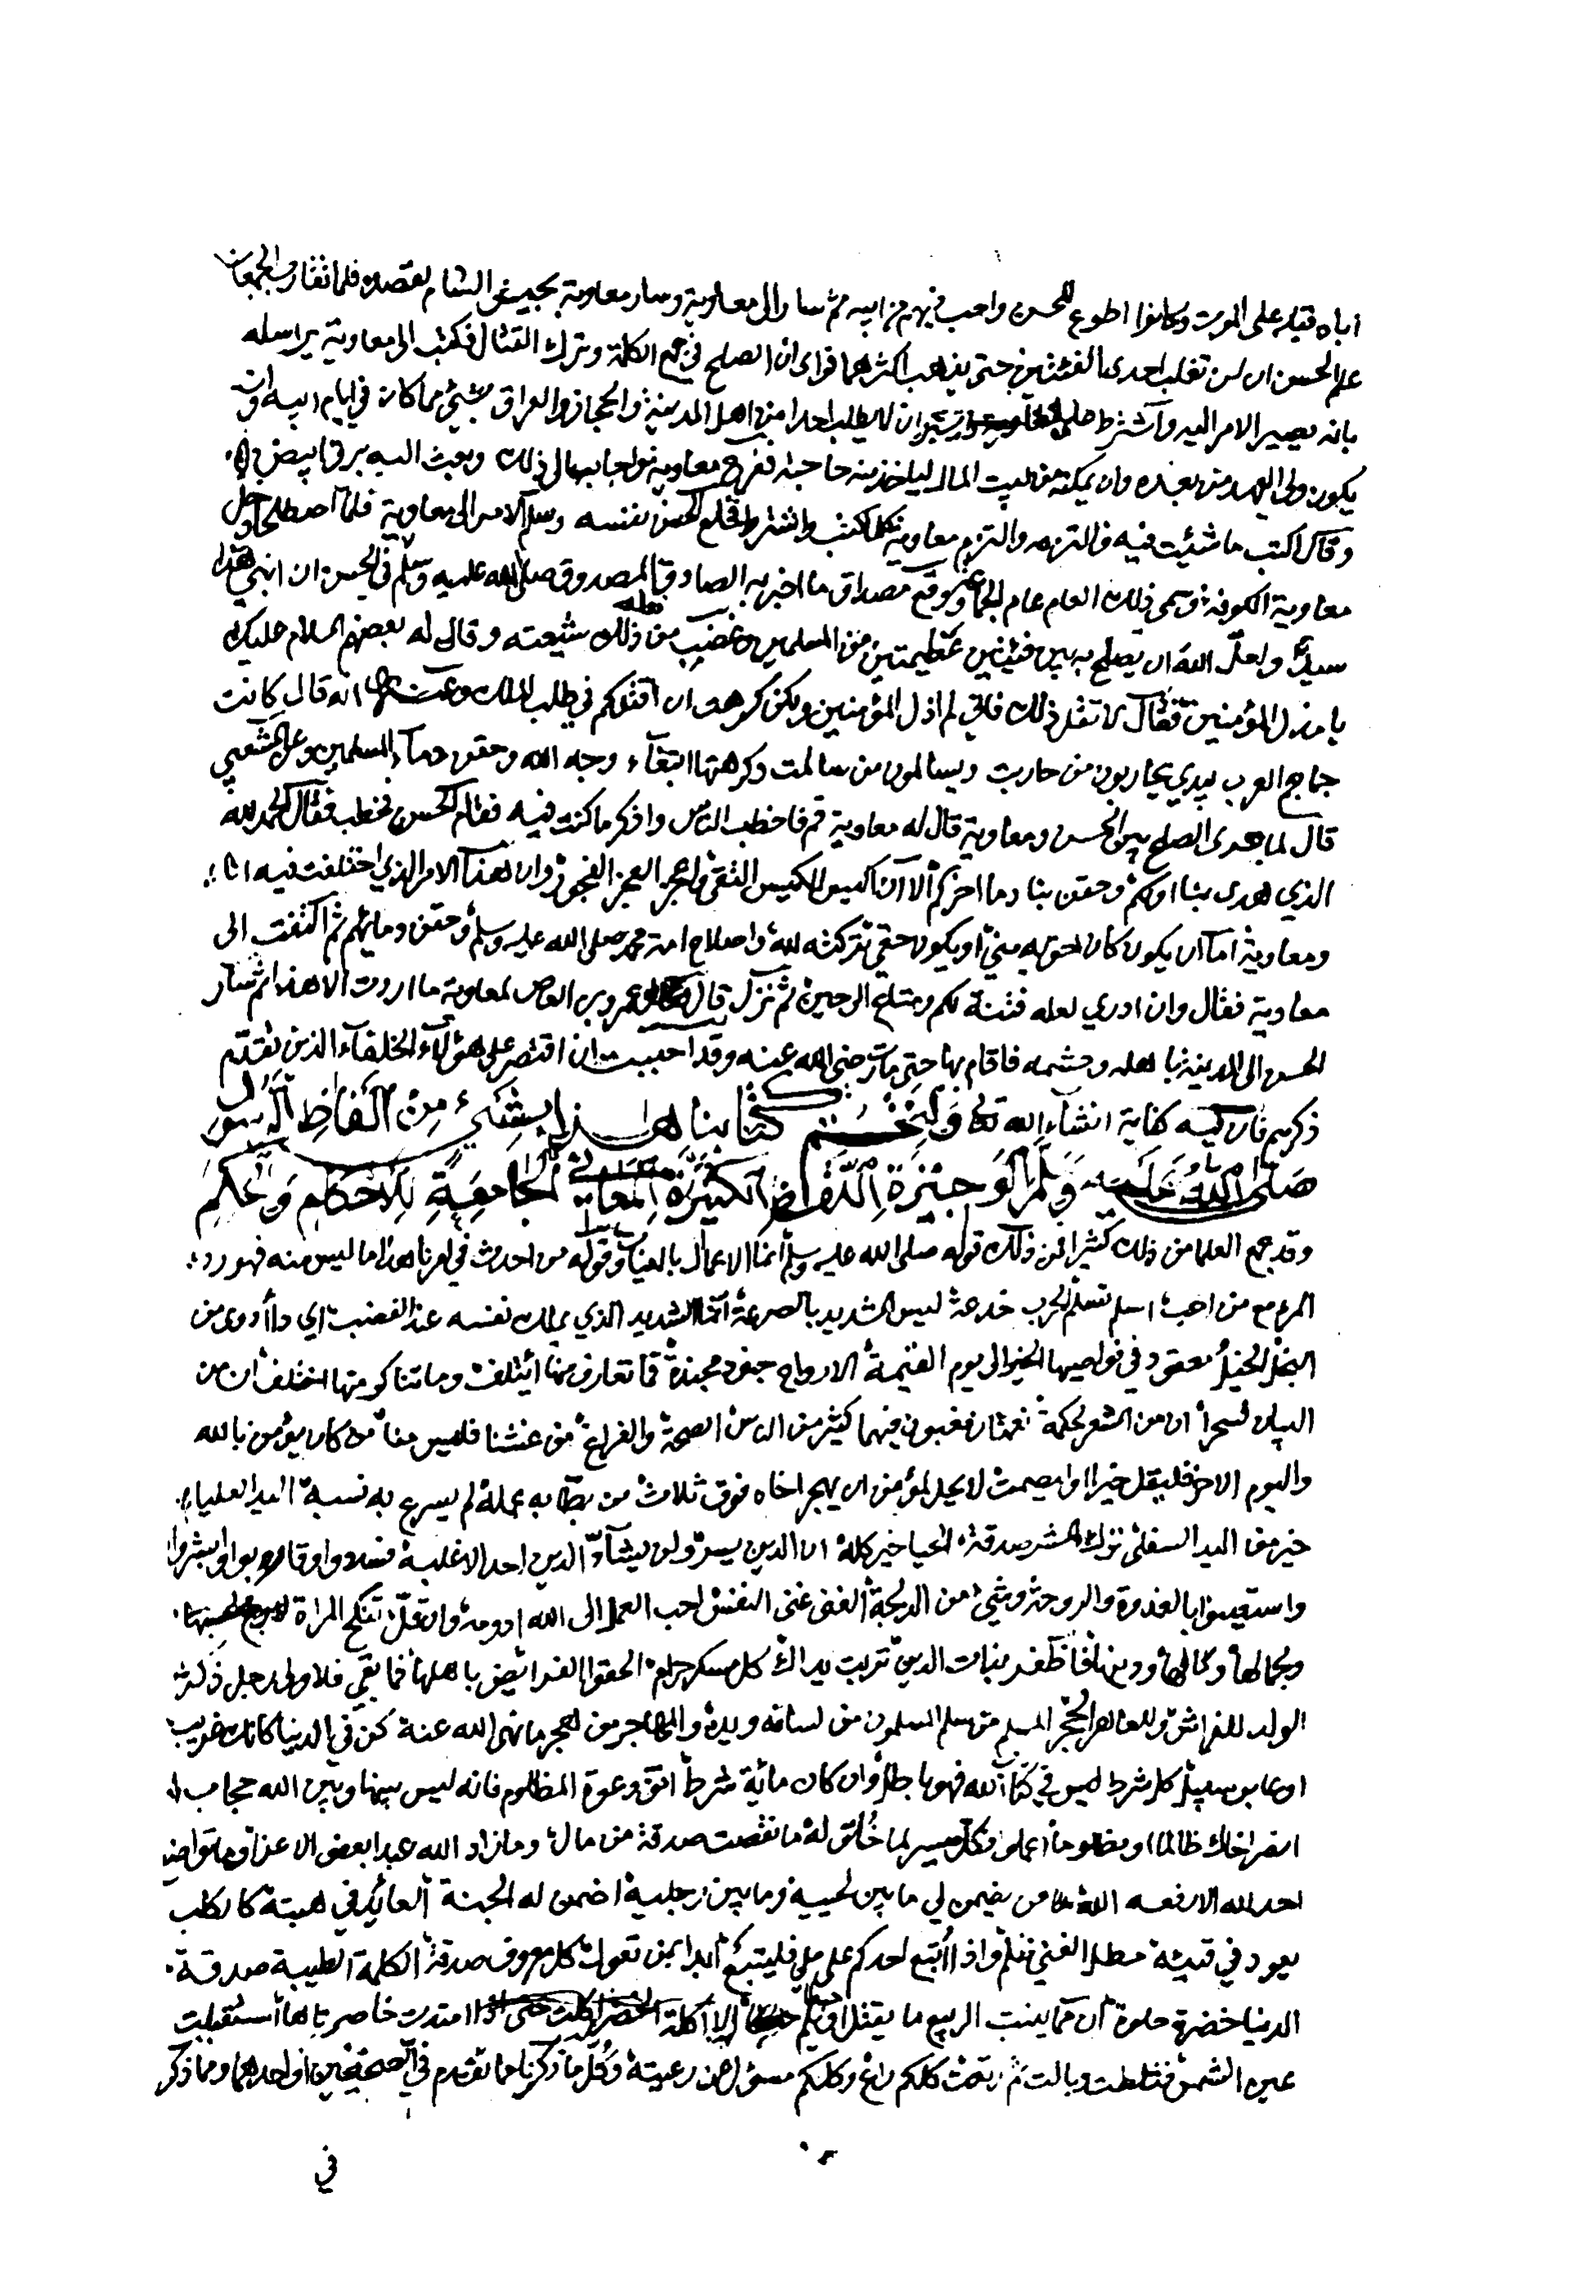 اباه قبله على الموت وكانوا اطوع للحسن واحب فيهم من ابيه ثم سار الى معاوية وسار معاوية بجيش الشام لقصده فلما تقارب الجمعان
علم الحسن ان لن تغلب احدى الفئتين حتى يذهب اكثرهما فراى ان الصلح في جمع الكلمة وترك القتال فكتب الى معاوية يراسله
بانه يصير الامر اليه واشترط عليه ان لا يطلب احدا من اهل المدينة والحجاز والعراق بشئ مما كان في ايام ابيه وان
يكون ولي العهد من بعده وان يمكنه من بيت المال لياخذ منه حاجته ففرح معاوية واجابه الى ذلك وبعث اليه برق ابيض
وقال اكتب ما شئت فيه فالتزمه والتزم معاوية كلما كتب واشترط فخلع الحسن نفسه وسلم الامر الى معاوية فلما اصطلحا دخل
معاوية الكوفة وسمى ذلك العام عام الجماعة ووقع مصداق ما اخبر به الصادق المصدوق صلى الله عليه وسلم في الحسن ان ابني هذا
سيد ولعل الله ان يصلح به بين فئتين عظيمتين من المسلمين وغضب من ذلك شيعته وقال له بعضهم السلام عليك
يا مذل المؤمنين فقال لا تقل ذلك فاني لم اذل المؤمنين ولكن كرهت ان اقتلكم في طلب الملك وعنه انه قال كانت
جماجم العرب بيدي يحاربون من حاربت ويسالمون من سالمت وكرهتها ابتغاء وجه الله وحقن دماء المسلمين وعن الشعبي
قال لما جرى الصلح بين الحسن ومعاوية قال له معاوية قم فاخطب الناس واذكر ما كنت فيه فقام الحسن فخطب فقال الحمد لله
الذي هدى بنا اولكم وحقن بنا دما اخركم الا ان اكيس الكيس التقى واعجز العجز الفجور وان هذا الامر الذي اختلفت فيه انا
ومعاوية اما ان يكون كان احق به مني او يكون حقي تركته لله واصلاح امة محمد صلى الله عليه وسلم وحقن دمائهم ثم التفت الى
معاوية فقال وان ادري لعله فتنة لكم ومتاع الى حين ثم نزل فقال عمرو بن العاص لمعاوية ما اردت الا هذا ثم سار
الحسن الى المدينة باهله وحشمه فاقام بها حتى مات رضي الله عنه وقد احببت ان اقتصر على هؤلاء الخلفاء الذين تقدم
ذكرهم فان فيه كفاية انشاء الله تعالى وَلْنَخْتِم كتابنا هذا بِشَيء مِنْ الفَاظِ الرسول
صَلى الله عَليه وَسَلم الوجيزة اللفظ الكثيرة المعاني الجامعة للاحكام والحكم
وقد جمع العلما من ذلك كثيرا فمن ذلك قوله صلى الله عليه وسلم انما الاعمال بالنيات وقوله من احدث في امرنا هذا ما ليس منه فهو رد
المرء مع من احب اسلم تسلم الحرب خدعة ليس الشديد بالصرعة انما الشديد الذي يملك نفسه عند الغضب اي داء ادوى من
البخل الخيل معقود في نواصيها الخير الى يوم القيمة الارواح جنود مجندة فما تعارف منها ائتلف وما تناكر منها اختلف ان من
البيان لسحرا ان من الشعر لحكمة نعمتان مغبون فيهما كثير من الناس الصحة والفراغ من غشنا فليس منا من كان يؤمن بالله
واليوم الاخر فليقل خيرا او ليصمت لا يحل لمؤمن ان يهجر اخاه فوق ثلاث من بطا به عمله لم يسرع به نسبه اليد العليا
خير من اليد السفلى ترك الشر صدقة الحيا خير كله ان الدين يسر ولن يشاد الدين احد الا غلبه فسددوا وقاربوا وابشروا
واستعينوا بالغدوة والروحة وشئ من الدلجة الغنى غنى النفس احب العمل الى الله ادومه وان قل تنكح المراة
وجمالها ومالها ودينها فاظفر بذات الدين تربت يداك كل مسكر حرام الحقوا الفرائض باهلها فما بقي فلاولى رجل ذكر
الولد للفراش وللعاهر الحجر المسلم من سلم المسلمون من لسانه ويده والمهاجر من هجر ما نهى الله عنه كن في الدنيا كانك غريب
او عابر سبيل كل شرط ليس في كتاب الله فهو باطل وان كان مائة شرط اتق دعوة المظلوم فانه ليس بينها وبين الله حجاب
انصر اخاك ظالما او مظلوما اعملوا فكل ميسر لما خُلق له ما نقصت صدقة من مال وما زاد الله عبدا بعفو الا عزا وما تواضع
احد لله الا رفعه الله من يضمن لي ما بين لحييه وما بين رجليه اضمن له الجنة العائد في هبته كالكلب
يعود في قيئه مطل الغني ظلم واذا اتبع احدكم على ملي فليتبع ابدا بمن تعول كل معروف صدقة الكلمة الطيبة صدقة
الدنيا خضرة حلوة ان مما ينبت الربيع ما يقتل او يلم الا اكلة الخضر اكلت حتى اذا امتدت خاصرتاها استقبلت
عين الشمس فثلطت وبالت ثم رتعت كلكم راع وكلكم مسؤل عن رعيته وكل ما ذكرنا مما تقدم في الصحيحين او احدهما ومما ذكر
في